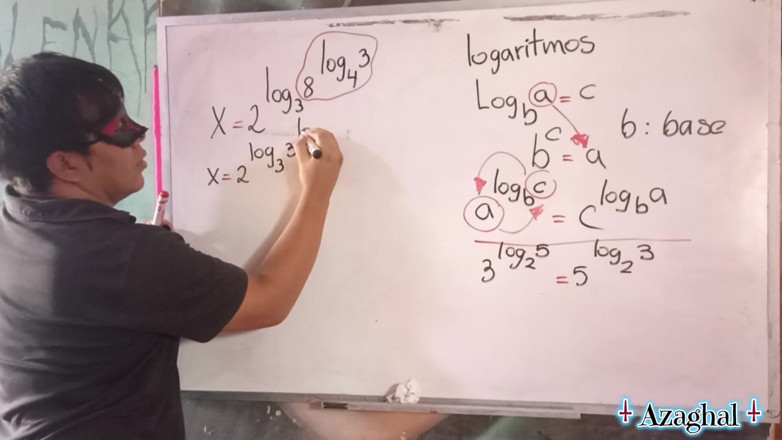 logaritmos
Log_b a = c
b^c = a
b : base
a^(log_b c) = c^(log_b a)
3^(log_2 5) = 5^(log_2 3)
X = 2^(log_3 8^(log_4 3))
X = 2^(log_3 3
Azaghal